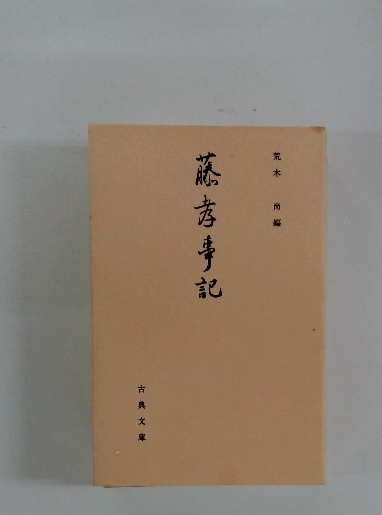 荒木尚編
藤孝事記
古典文庫